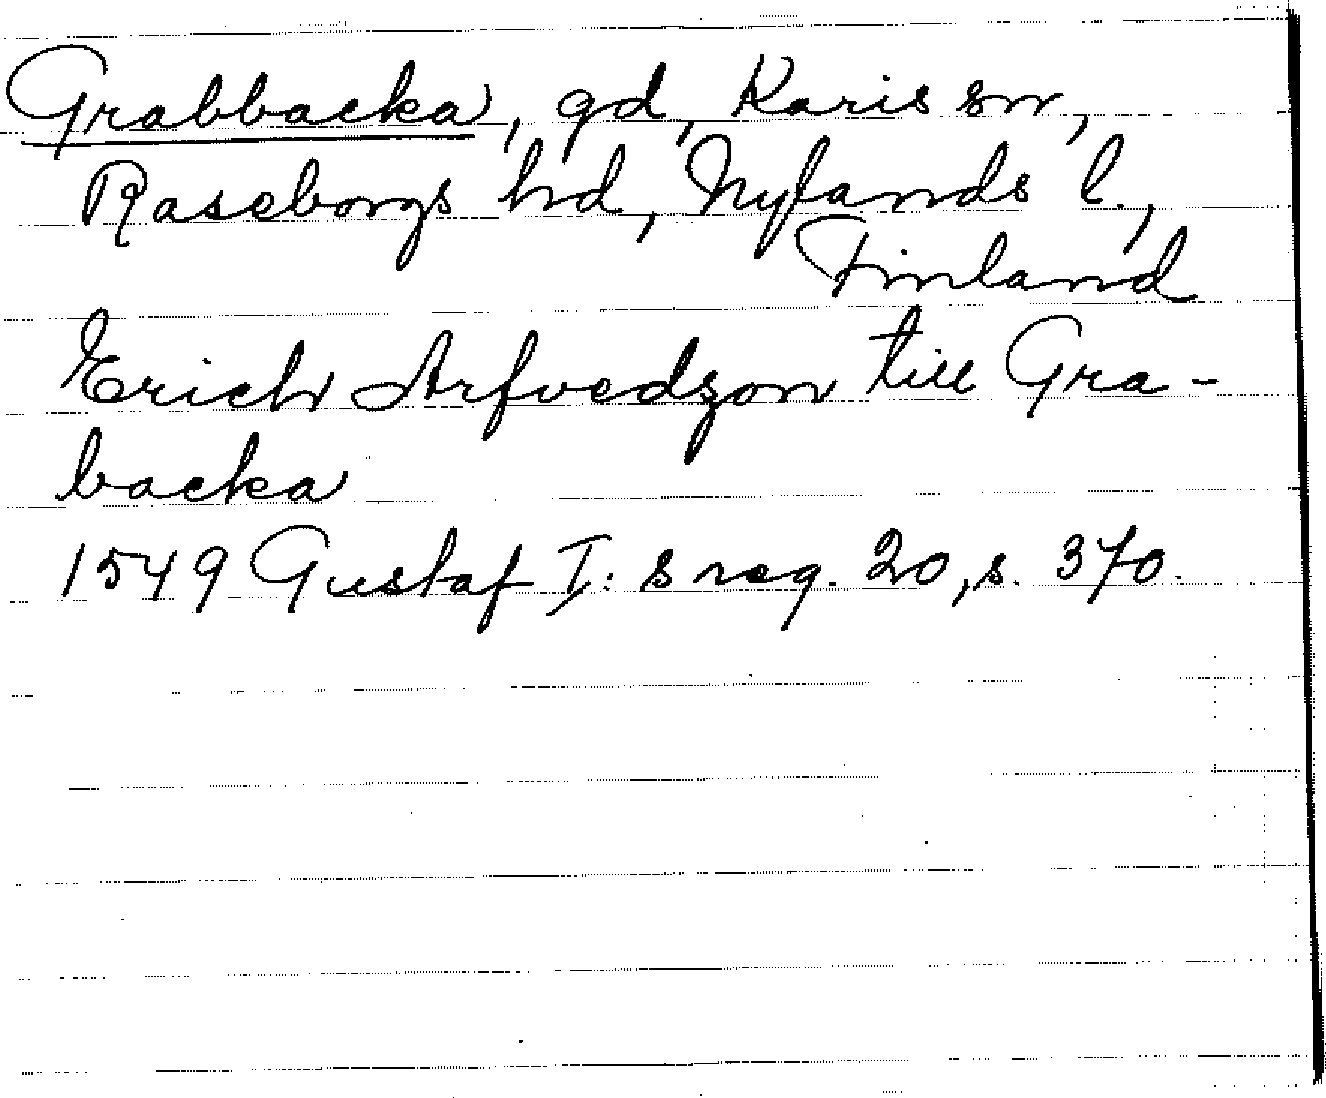 Grabbacka, gd, Karis sn,
Raseborgs hd, Nylands l.,
Finland
Erich Arfvedzon till Gra-
backa
1549 Gustaf I:s reg. 20, s. 370.